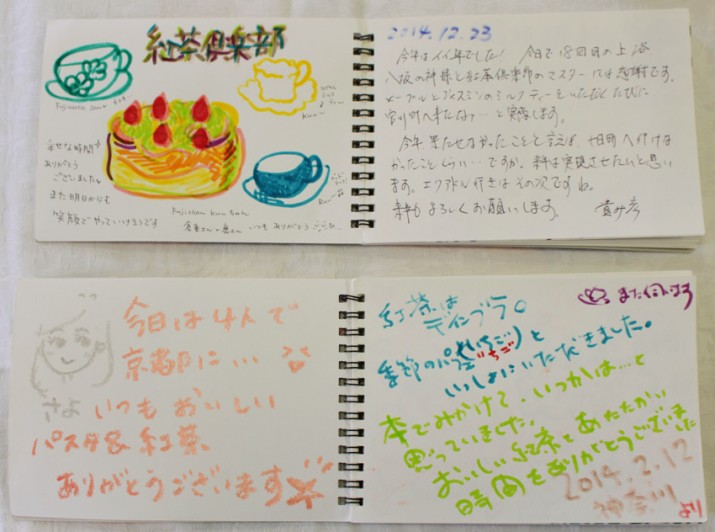 紅茶倶楽部
幸せな時間を
ありがとう
ございました
また明日からも
笑顔でやっていけそうです
いつもありがとう
2014.12.23
今年はイイ年でした! 今日で18回目の上洛
八坂の神様と紅茶倶楽部のマスターには感謝です。
メープルとジャスミンのミルクティーをいただくたびに
来たなァ…と実感します。
今年、果たせなかったことと言えば、
かったことくらい…ですが、来年は実現させたいと思い
ます。エクアドル行きはその次ですね。
来年もよろしくお願いします。
今日は4人で
京都に…
さよ
いつもおいしい
パスタ&紅茶
ありがとうございます
紅茶は
ディンブラ。
季節のパフェ(いちご)と
いっしょにいただきました。
本でみかけて、いつかは…と
思っていました。
おいしい紅茶とあたたかい
時間をありがとうございました
2014.2.12
神奈川
より